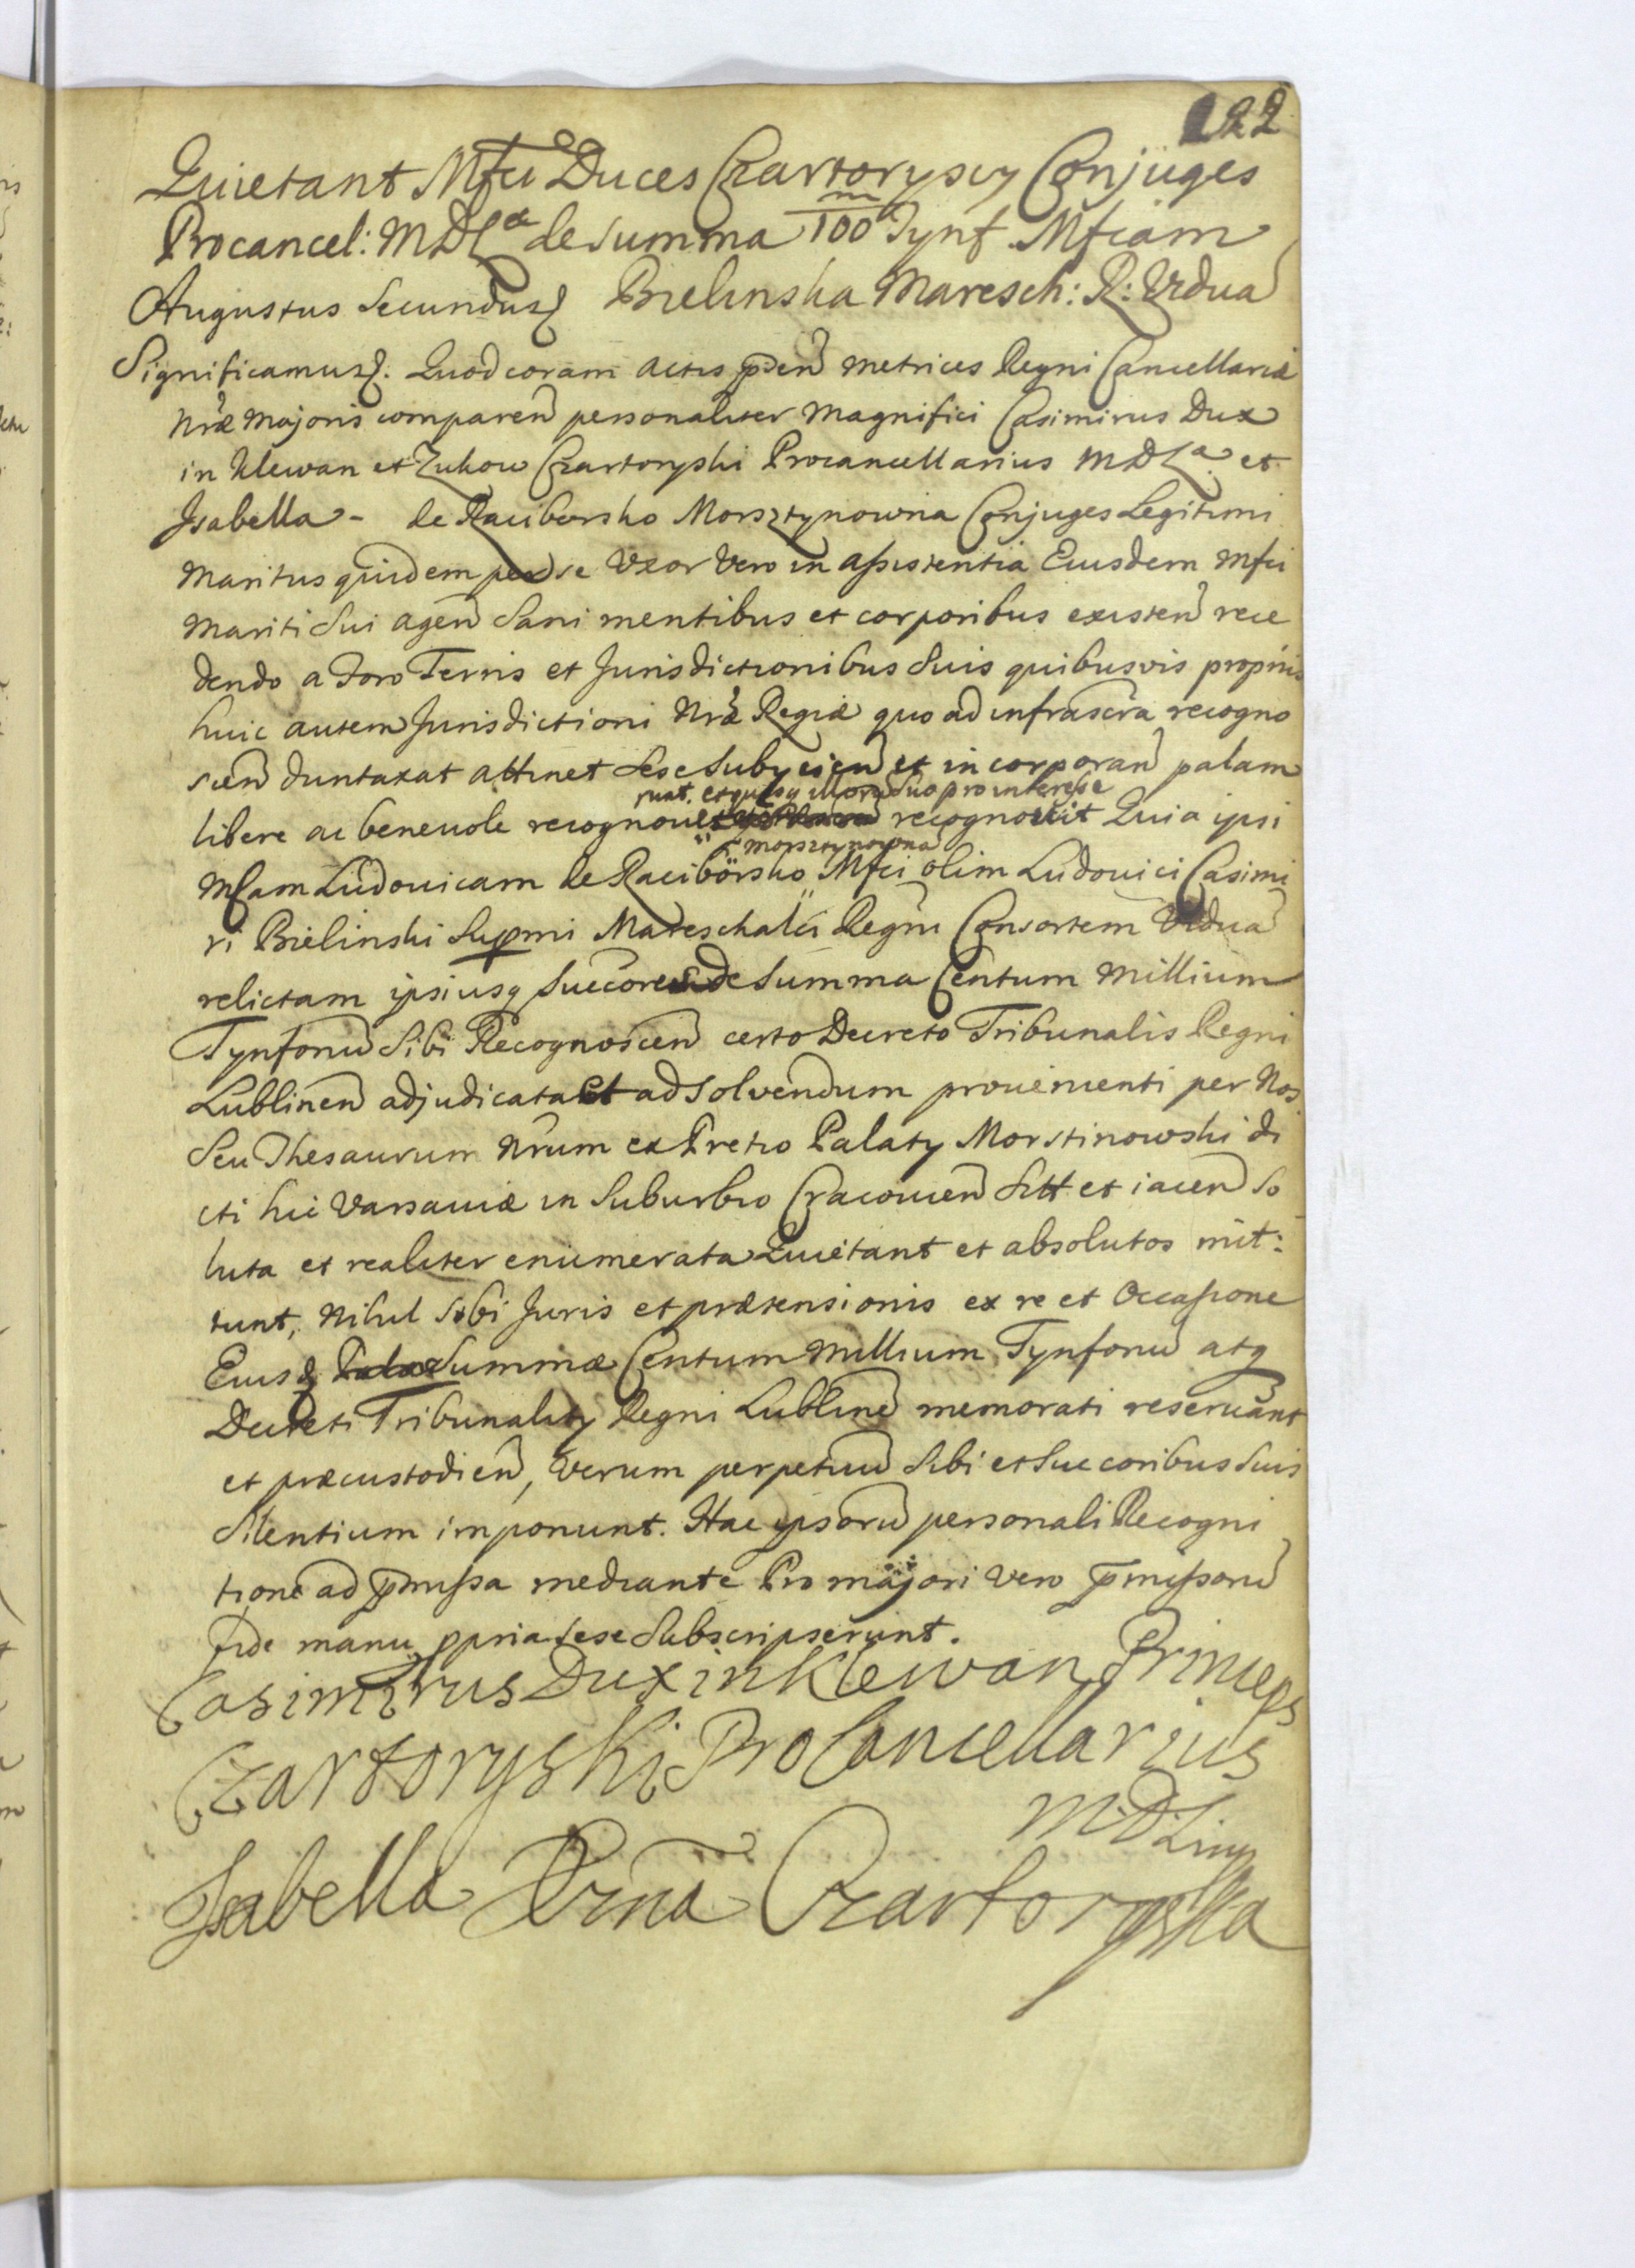 122
Quietant Mfci Duces Czartoryscy Conjuges
Procancel: MDLæ de Summa m/100 Tynf. Mfcam
Augustus Secundus Bielinska Maresch: R: Vidua
Significamus. Quod coram actis psen Metrices Regni Cancellariæ
Nræ Majoris comparen personaliter Magnifici Casimirus Dux
in Klewan et Zukow Czartoryski Procancellarius MDLæ et
Isabella - de Raciborsko Morsztynowna Conjuges Legitimi
Maritus quidem per se Uxor Vero in assistentia Eiusdem Mfci
Mariti Sui agen Sani mentibus et corporibus existen rece
dendo a Foro Terris et Jurisdictionibus Suis quibusvis proprijs
huic autem Jurisdictioni Nræ Regiæ quo ad infrascra recogno
scen duntaxat attinet Sese Subijcien et incorporan palam
runt. et quisq illorū suo pro interesse
libere ac benevole recognove recognovit Quia ipsi
Morsztynowna
Mfcam Ludovicam de Raciborsko Mfci olim Ludovici Casimi
ri Bielinski Supmi Mareschalci Regni Consortem Viduā
relictam ipsiusq Succores de Summa Centum Millium
Tynfonū Sibi Recognoscen certo Decreto Tribunalis Regni
Lublinen adjudicata et ad Solvendum provenienti per Nos
Seu Thesaurum Nrum ex Pretio Palaty Morstinowski di
cti hic Varsaviæ in Suburbio Cracovien Sitt et iacen So
luta et realiter enumerata Quietant et absolutos mit:
tunt, Nihil Sibi Juris et prætensionis ex re et Occasione
Eiusd Summæ Centum Millium Tynfonū atq
Decreti Tribunality Regni Lublinē memorati reservant
et præcustodien, Verum perpetuū Sibi et Succoribus Suis
Silentium imponunt. Hac ipsorū personali Recogni
tione ad pmissa mediante Pro majori vero pmissorū
fide manu ppria sese Subscripserunt.
Casimirus Dux in Klewan Princeps
Czartoryski ProCancellarius
M.D. Lit
Isabella Xżna Czartoryska